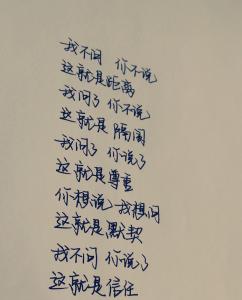 我不问 你不说
这就是距离
我问了 你不说
这就是隔阂
我问了 你说了
这就是尊重
你想说 我想问
这就是默契
我不问 你说了
这就是信任